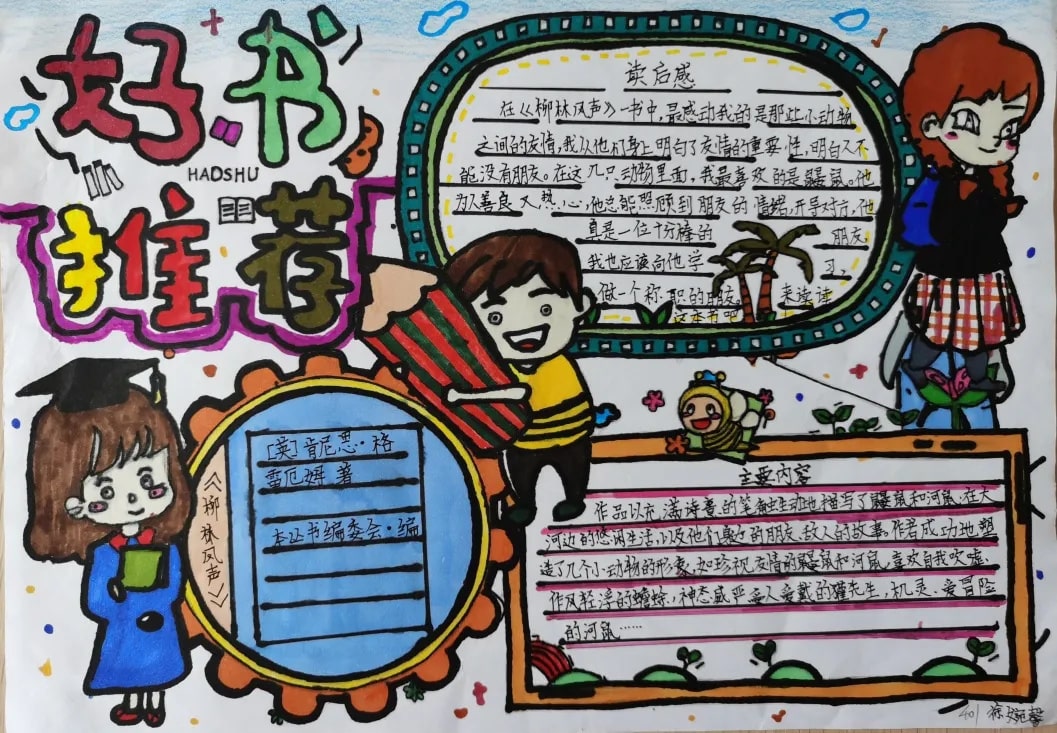 好书
HAOSHU
推荐
读后感
在《柳林风声》一书中，最感动我的是那些小动物
之间的友情，我从他们身上明白了友情的重要性，明白人不
能没有朋友。在这几只动物里面，我最喜欢的是鼹鼠。他
为人善良又热心，他总能照顾到朋友的情绪，开导对方，他
真是一位十分棒的朋友，
我也应该向他学习，
做一个称职的朋友。来读读
这本书吧
《柳林风声》
[英]肯尼思·格
雷厄姆 著
本丛书编委会·编
主要内容
作品以充满诗意的笔触生动地描写了鼹鼠和河鼠在大
河边的悠闲生活，以及他们身边的朋友、敌人的故事。作者成功地塑
造了几个小动物的形象，如珍视友情的鼹鼠和河鼠，喜欢自我吹嘘
作风轻浮的蟾蜍，神态威严受人爱戴的獾先生，机灵、爱冒险
的河鼠……
401